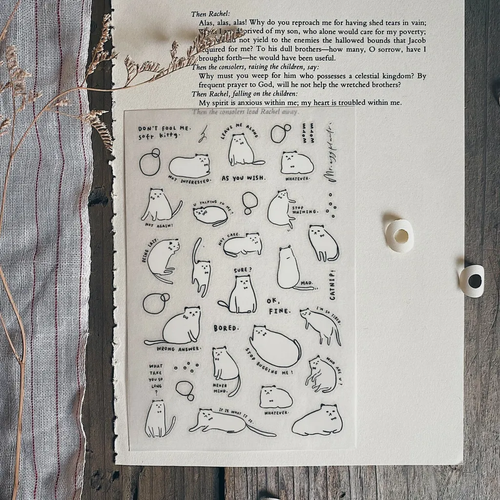 Then Rachel:
Alas, alas, alas! Why do you reproach me for having shed tears in vain;
of my son, who alone would care for my poverty;
not yield to the enemies the hallowed bounds that Jacob
acquired for me? To his dull brothers—how many, O sorrow, have I
brought forth—he would have been useful.
Then the consolers, raising the children, say:
Why must you weep for him who possesses a celestial kingdom? By
frequent prayer to God, will he not help the wretched brothers?
Then Rachel, falling on the children:
My spirit is anxious within me; my heart is troubled within me.
Then the consolers lead Rachel away
DON'T FOOL ME.
soft kitty.
LEAVE ME ALONE
NOT INTERESTED.
AS YOU WISH.
WHATEVER.
NOT AGAIN!
U TALKING TO ME?
STOP WHINING.
BEING LAZY.
NOT CARE.
SURE?
MAD.
CATNIP!
OK,
FINE.
I'M SO TIRED
WRONG ANSWER.
BORED.
STOP BUGGING ME!
WHAT
TAKE
YOU SO
LONG?
NEVER
MIND.
WHO ARE U?
IT IS WHAT IT IS
WHATEVER.